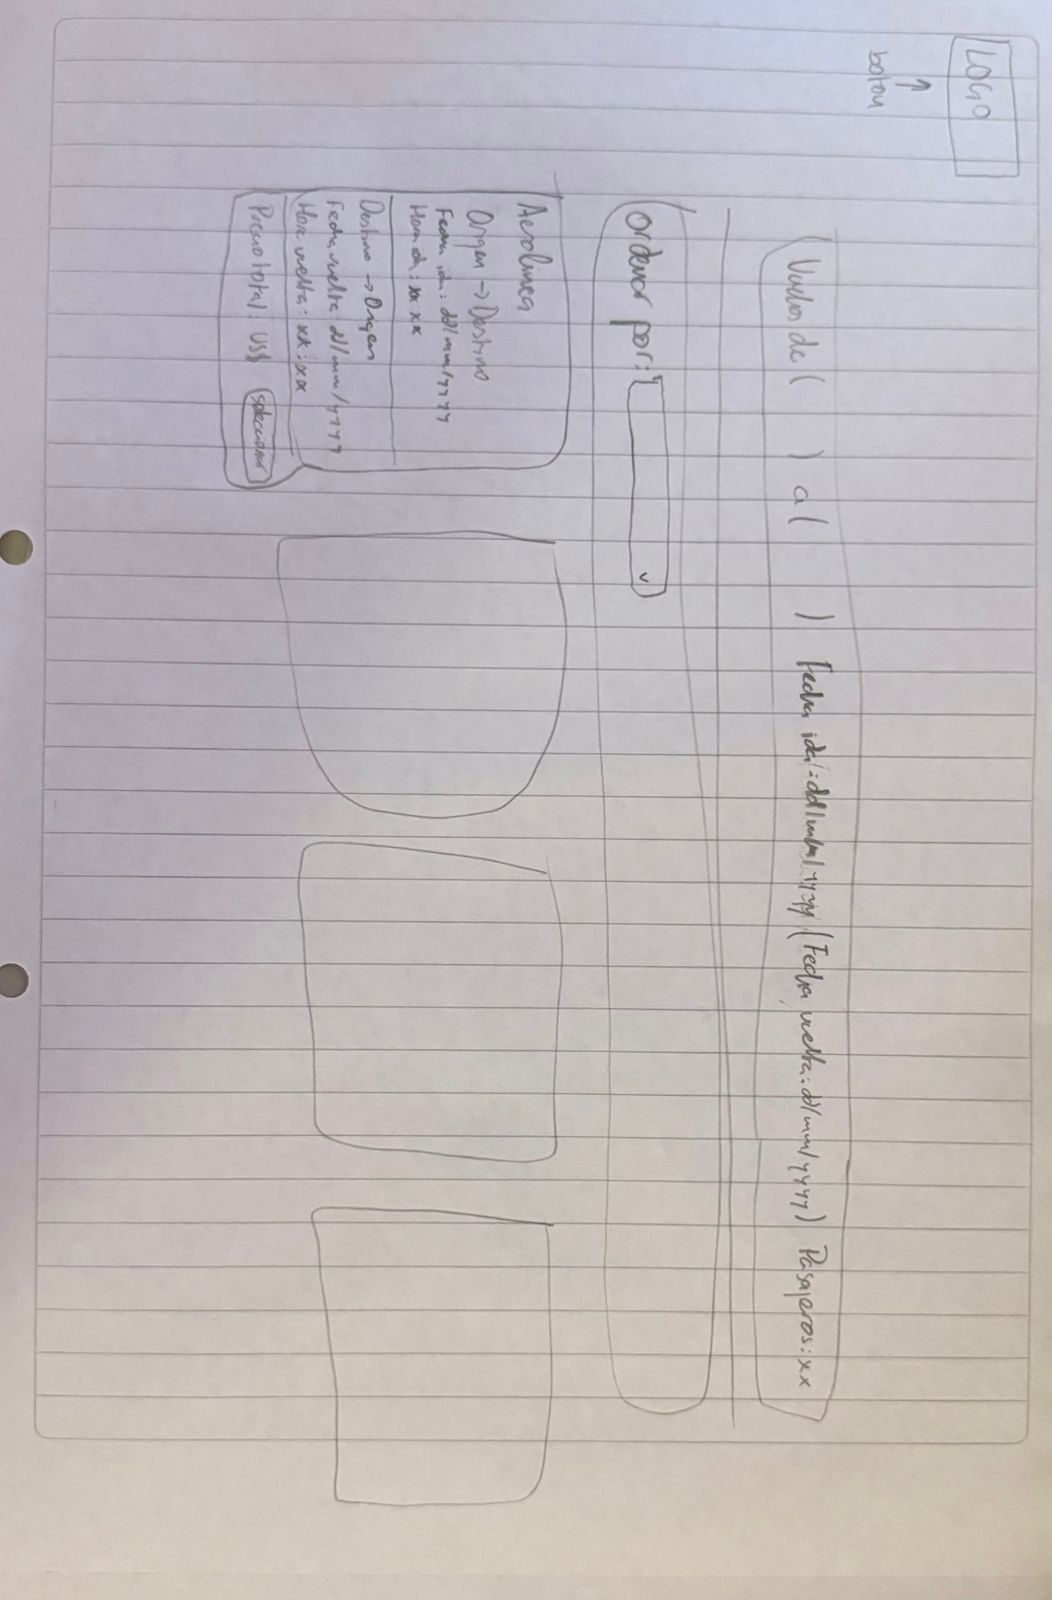 LOGO
↑
boton
Vuelos de (    ) a (    ) Fecha ida: dd/mm/yyyy (Fecha vuelta: dd/mm/yyyy) Pasajeros: xx
Ordenar por: v
Aerolinea
Origen → Destino
Fecha ida: dd/mm/yyyy
Hora ida: xx xx
Destino → Origen
Fecha vuelta: dd/mm/yyyy
Hora vuelta: xx:xx
Precio total: US$ Seleccionar